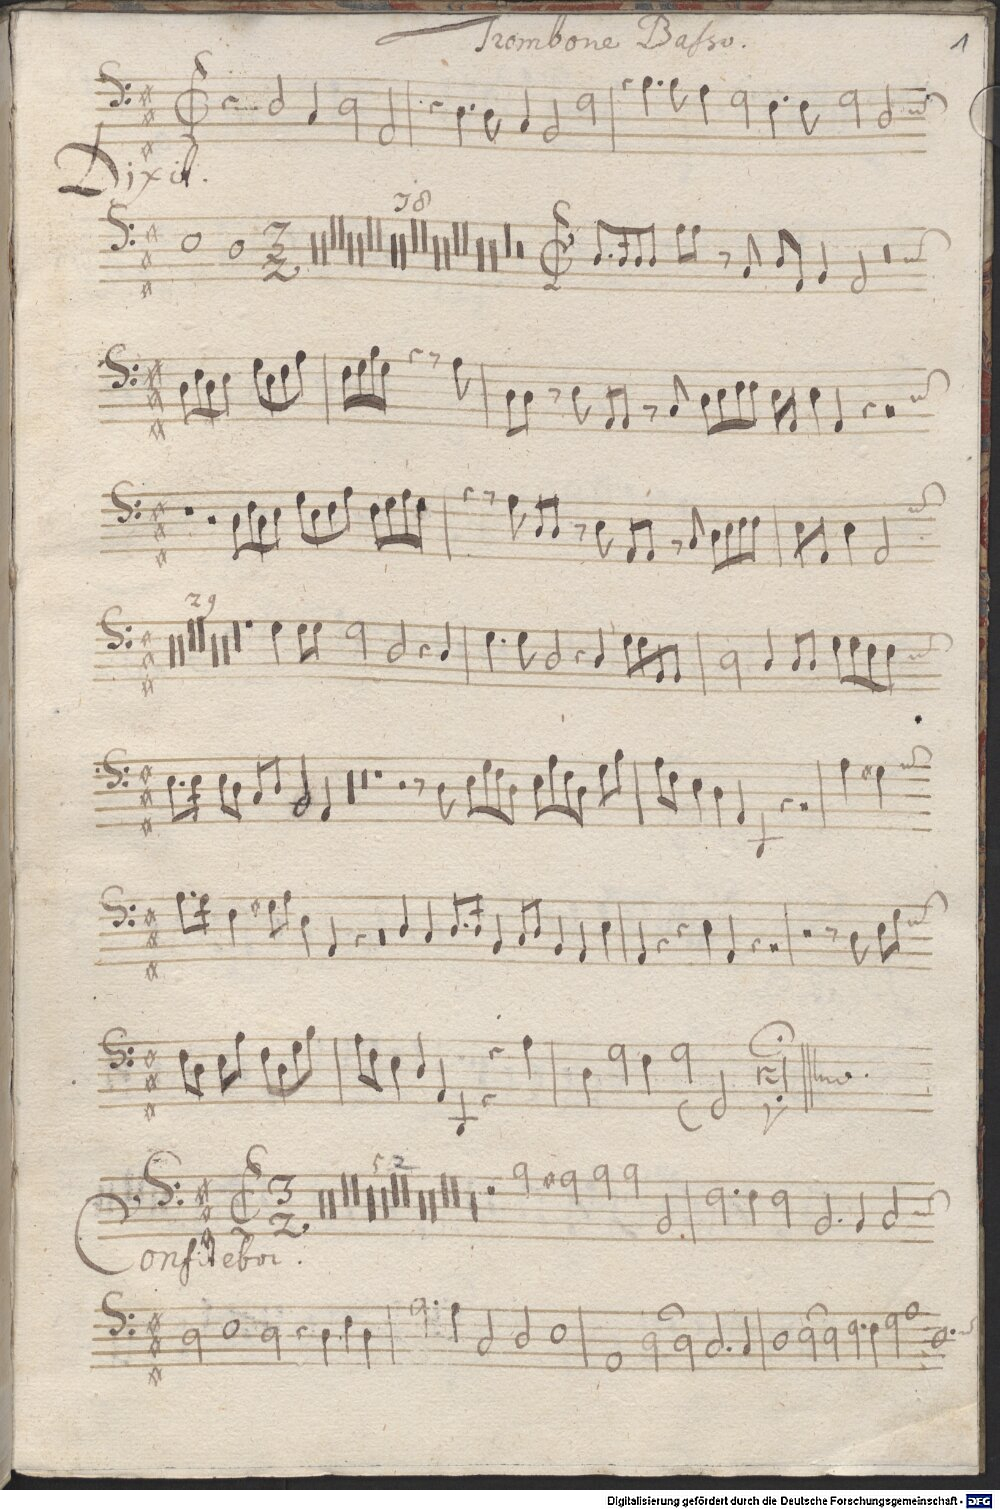 Trombone Basso.
1
Dixit.
3
2
38
29
3
2
52
Confitebor.
Digitalisierung gefördert durch die Deutsche Forschungsgemeinschaft - DFG